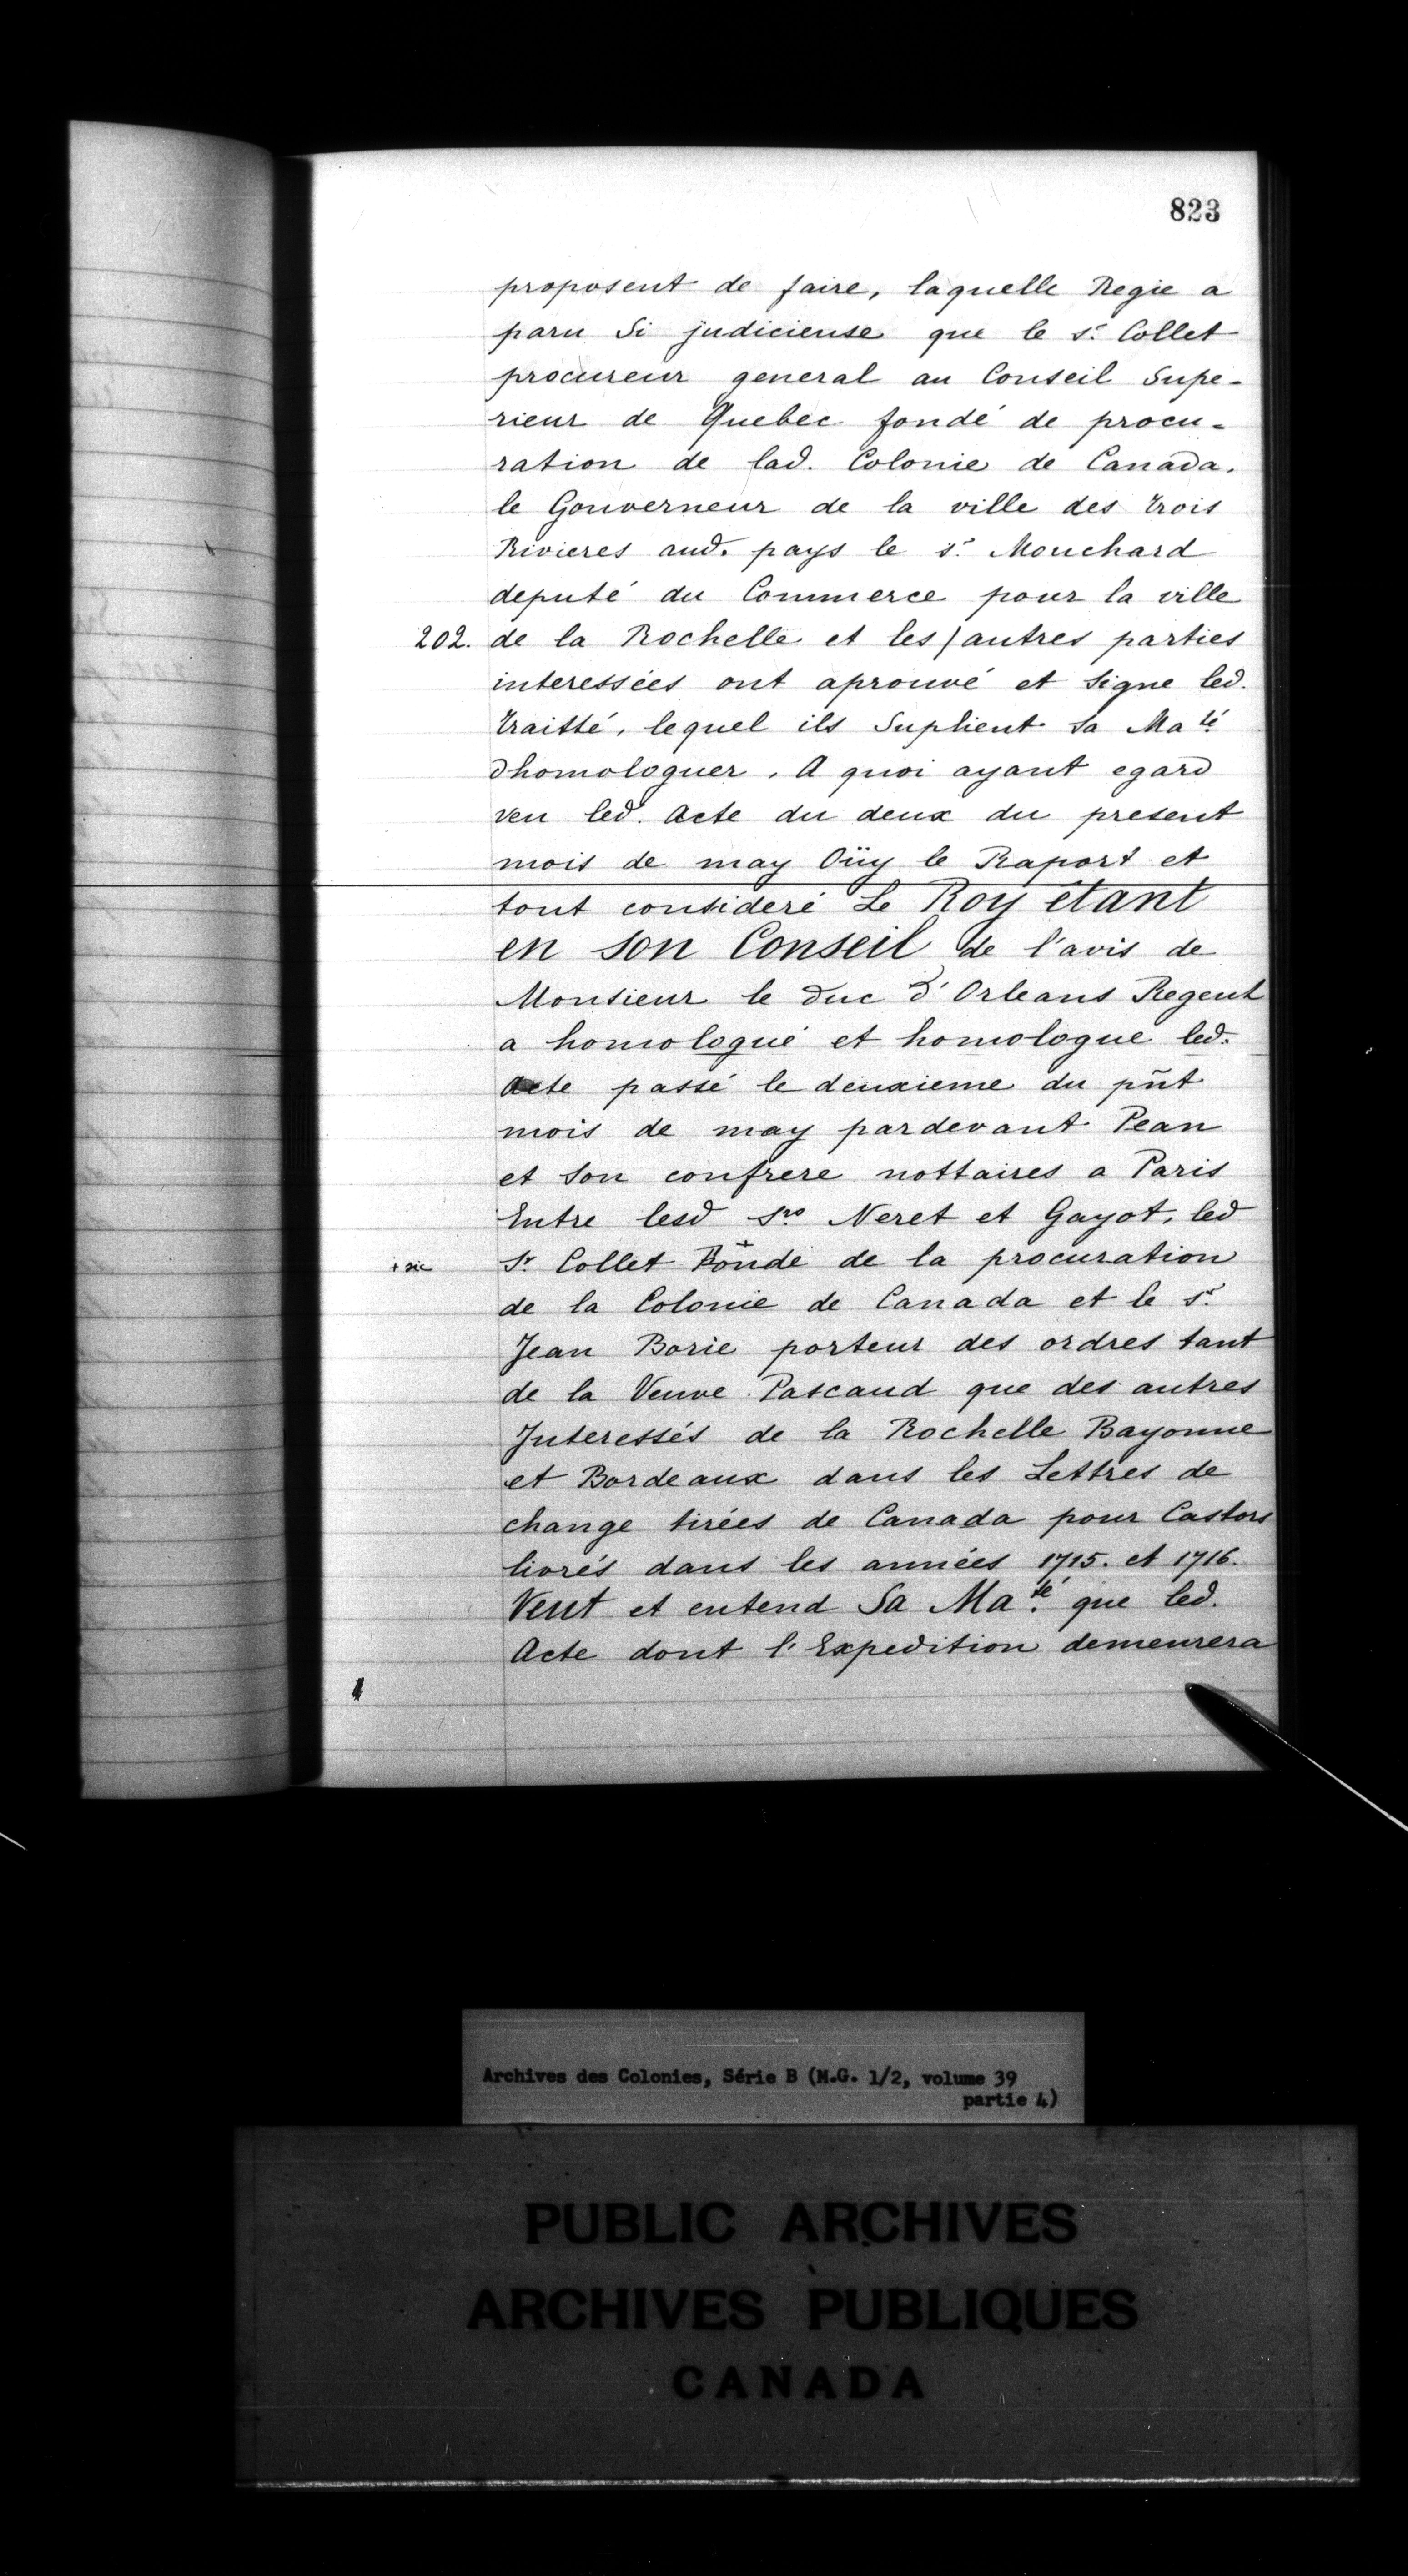 823
proposent de faire, laquelle Regie a
paru Si judicieuse que le s.r Collet
procureur general au Conseil Supe-
rieur de Quebec fondé de procu-
ration de lad. Colonie de Canada.
le Gouverneur de la ville des trois
Rivieres aud. pays le s.r Mouchard
deputé du Commerce pour la ville
202. de la Rochelle et les / autres parties
interessées ont aprouvé et Signe led.
traitté, lequel ils Suplient Sa Ma.té
dhomologuer. A quoi ayant egard
veu led. Acte du deux du present
mois de may Oüy le Raport et
tout consideré Le Roy étant
en son Conseil de l'avis de
Monsieur le Duc d'Orleans Regent
a homologué et homologue led.
Acte passé le deuxieme du pñt
mois de may pardevant Pean
et Son confrere nottaires a Paris
Entre lesd Srs Neret et Gayot, led
+ sic Sr Collet Fondé + de la procuration
de la Colonie de Canada et le s.r
Jean Borie porteur des ordres tant
de la Veuve Pascaud que des autres
Interessés de la Rochelle Bayonne
et Bordeaux dans les Lettres de
change tirées de Canada pour Castors
livrés dans les années 1715. et 1716.
Veut et entend Sa Ma.té que led.
Acte dont l'Expedition demeurera
Archives des Colonies, Série B (M.G. 1/2, volume 39
partie 4)
PUBLIC ARCHIVES
ARCHIVES PUBLIQUES
CANADA